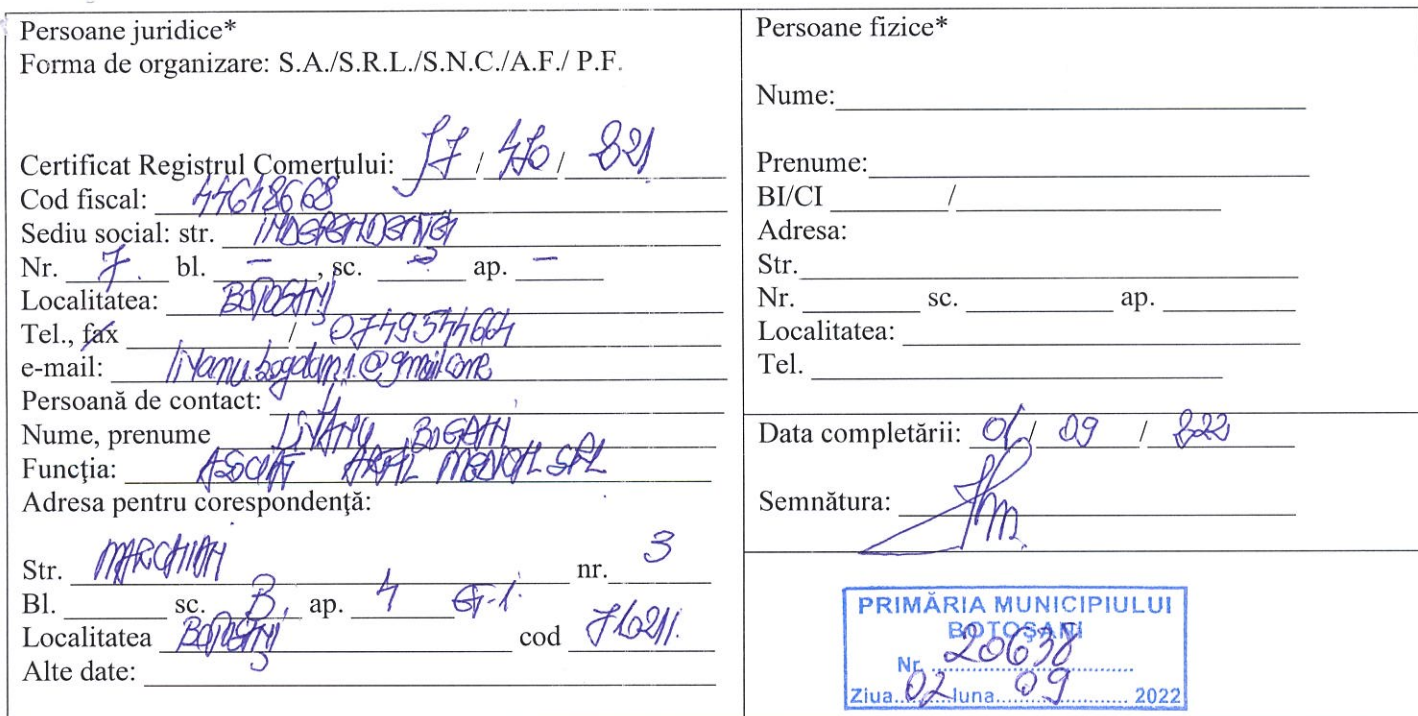 Persoane juridice*
Forma de organizare: S.A./S.R.L./S.N.C./A.F./ P.F.
Certificat Registrul Comerţului: J7 / 470 / 821
Cod fiscal: 44648668
Sediu social: str. INDEPENDENTEI
Nr. 7. bl. – , sc. – ap. –
Localitatea: BOTOŞANI
Tel., fax / 0749544664
e-mail:
Persoană de contact:
Nume, prenume LIVANU BOGDAN
Funcţia: ASOCIAT MEDICAL SRL
Adresa pentru corespondenţă:
Str. MARCHIAN nr. 3
Bl. sc. B, ap. 4 ET-1.
Localitatea BOTOŞANI cod 710211.
Alte date:
Persoane fizice*
Nume:
Prenume:
BI/CI /
Adresa:
Str.
Nr. sc. ap.
Localitatea:
Tel.
Data completării: 01/ 09 / 222
Semnătura:
PRIMĂRIA MUNICIPIULUI
BOTOŞANI
Nr. 20638
Ziua 02 luna 09 2022